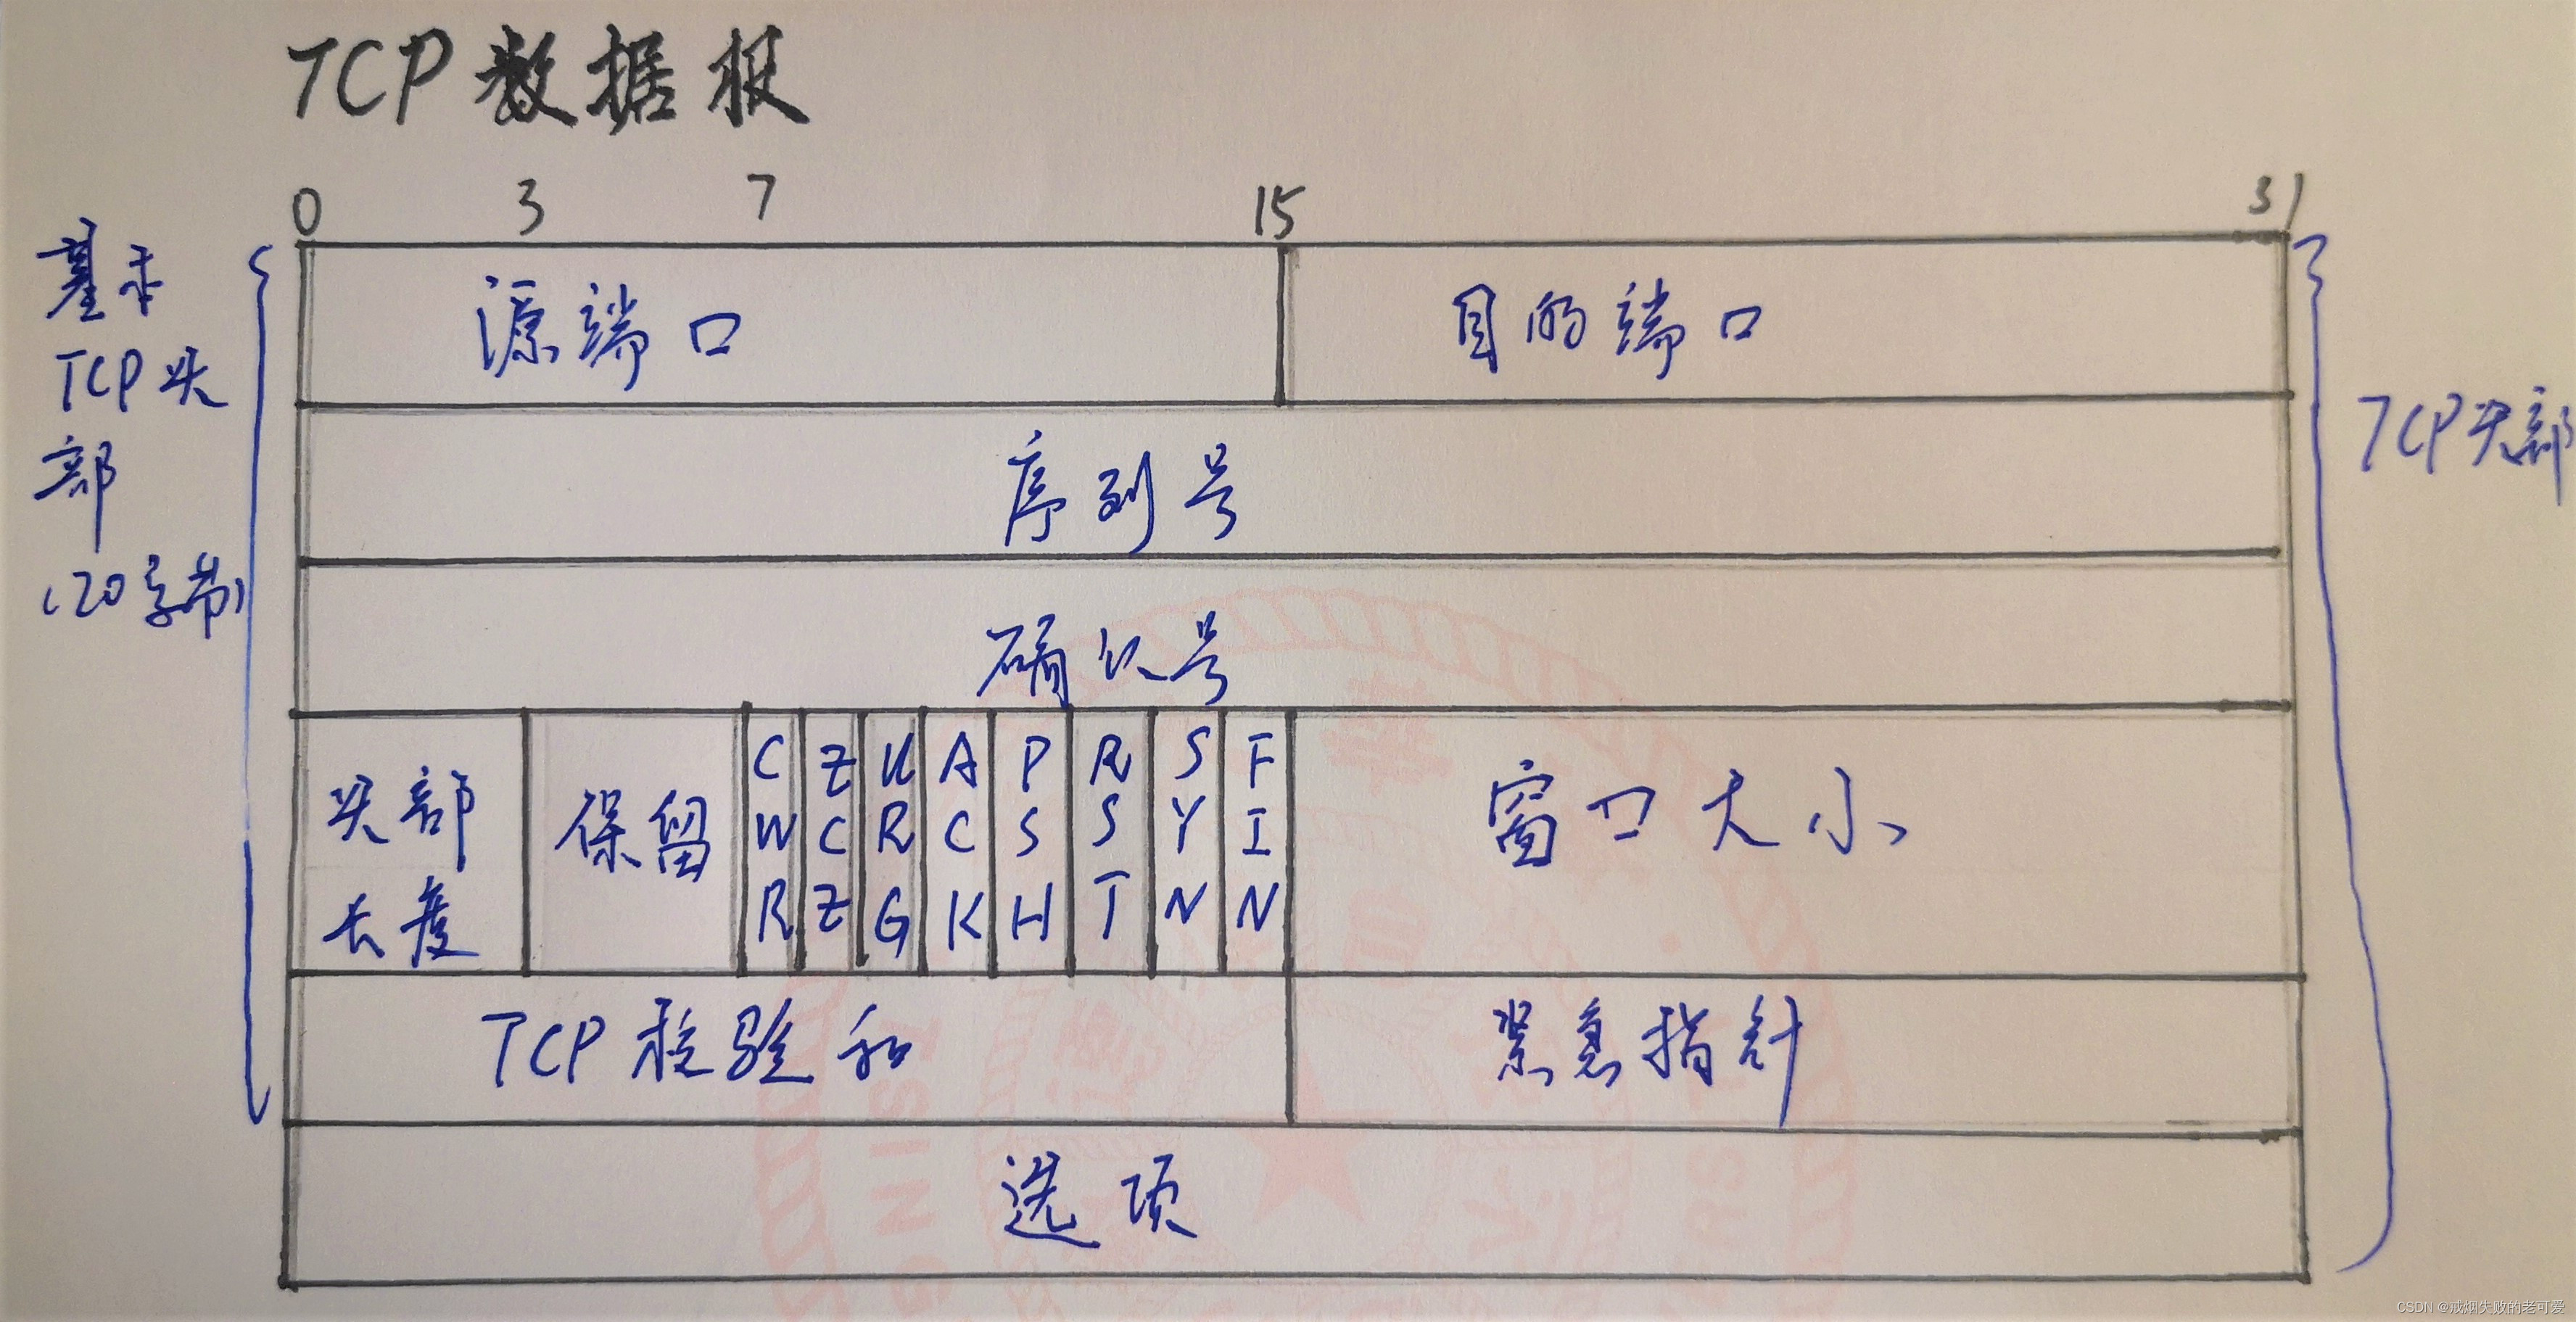 TCP数据报
0 3 7 15 31
基本
TCP头
部
(20字节)
源端口 目的端口
TCP头部
序列号
确认号
头部
长度
保留
CWR
ZCZ
URG
ACK
PSH
RST
SYN
FIN
窗口大小
TCP校验和 紧急指针
选项
CSDN @戒烟失败的老可爱